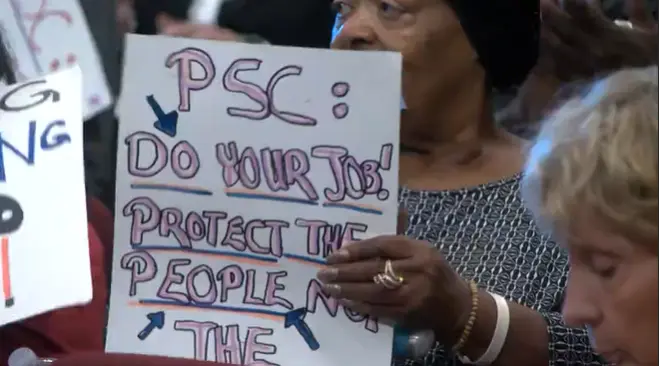 PSC:
DO YOUR JOB!
PROTECT THE
PEOPLE NOT
THE
G
NG